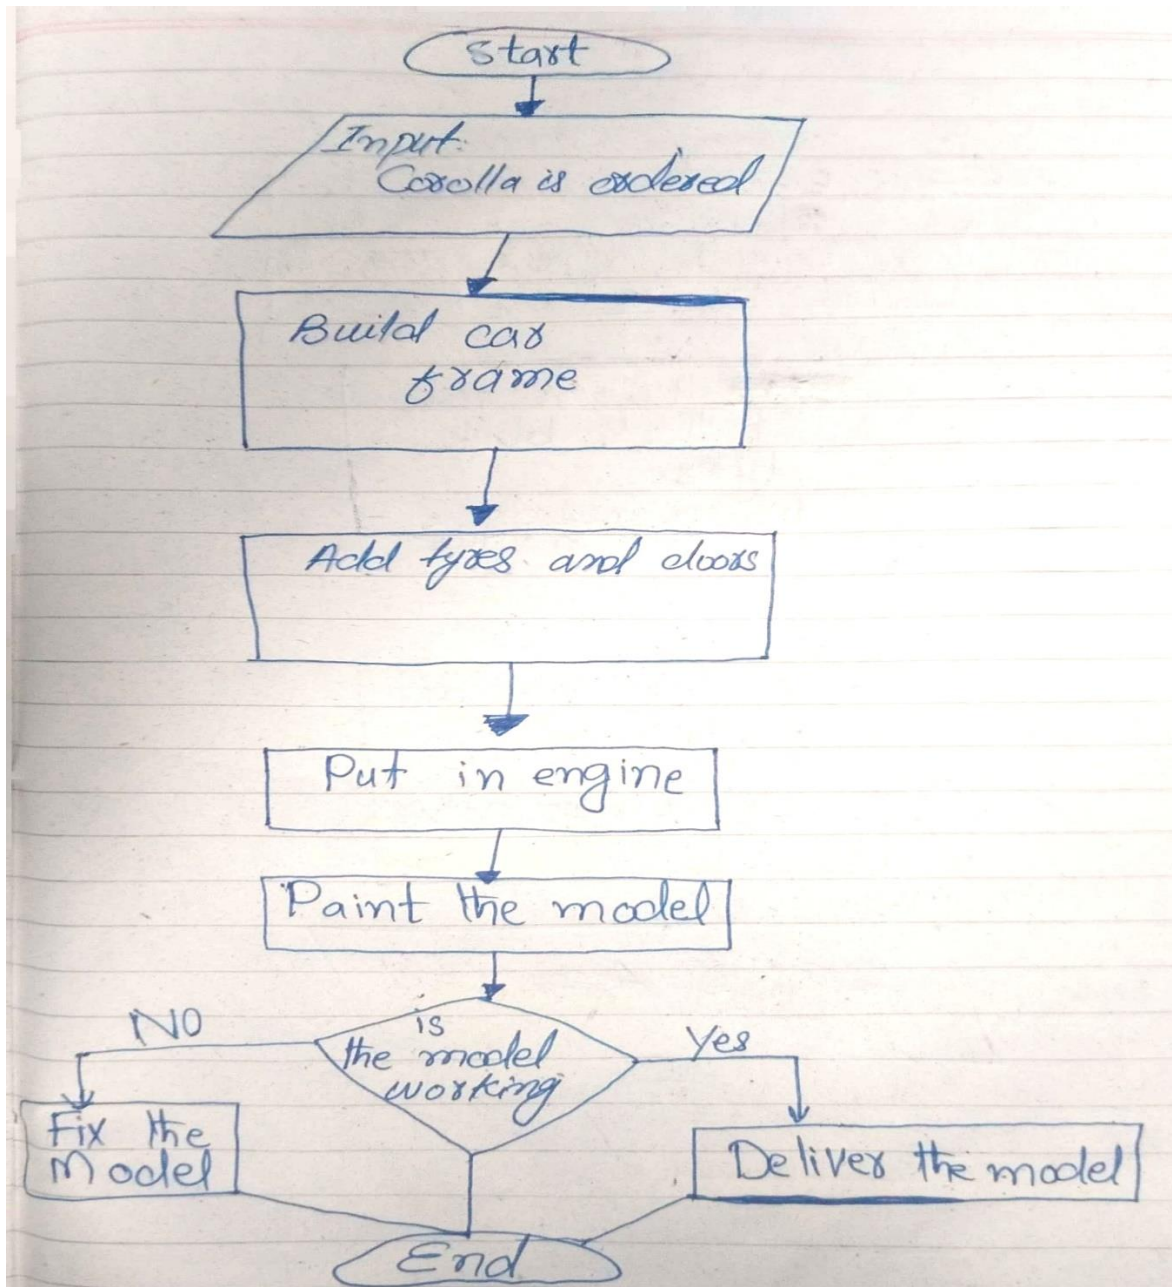 Start
Input:
Corolla is ordered
Build car
frame
Add tyres and doors
Put in engine
Paint the model
is
the model
working
NO
Yes
Fix the
Model
Deliver the model
End